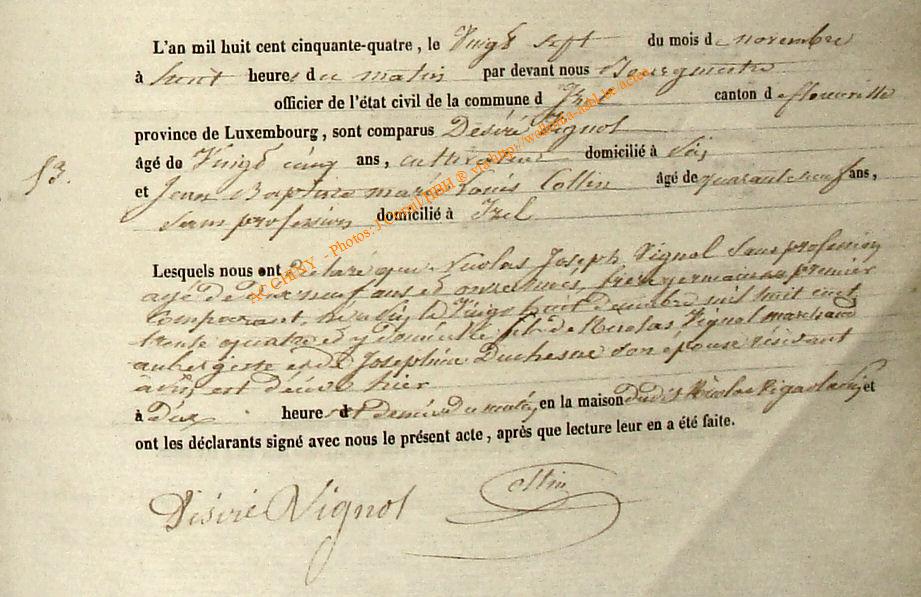 L'an mil huit cent cinquante-quatre, le Vingt sept du mois de novembre
à huit heures du matin par devant nous Bourgmestre
officier de l'état civil de la commune d'Izel canton de florenville
province de Luxembourg, sont comparus Désiré Vignol
âgé de Vingt cinq ans, cultivateur domicilié à
53.
et Jean Baptiste marie Louis Collin âgé de quarante neuf ans,
Sans profession domicilié à Izel
Lesquels nous ont Déclaré que Nicolas Joseph Vignol Sans profession
agé de dix neuf ans et onze mois, frère germain au premier
Comparant, né le Vingt huit décembre mil huit cent
trente quatre et y domicilié fils de Nicolas Vignol marchand
aubergiste et de Josephine Duchesne son epouse résidant
est décédé hier
à Dix heures et Demie du matin, en la maison dudit Nicolas Vignol et
ont les déclarants signé avec nous le présent acte, après que lecture leur en a été faite.
Désiré Vignol
Collin
AC CHINY - Photos: